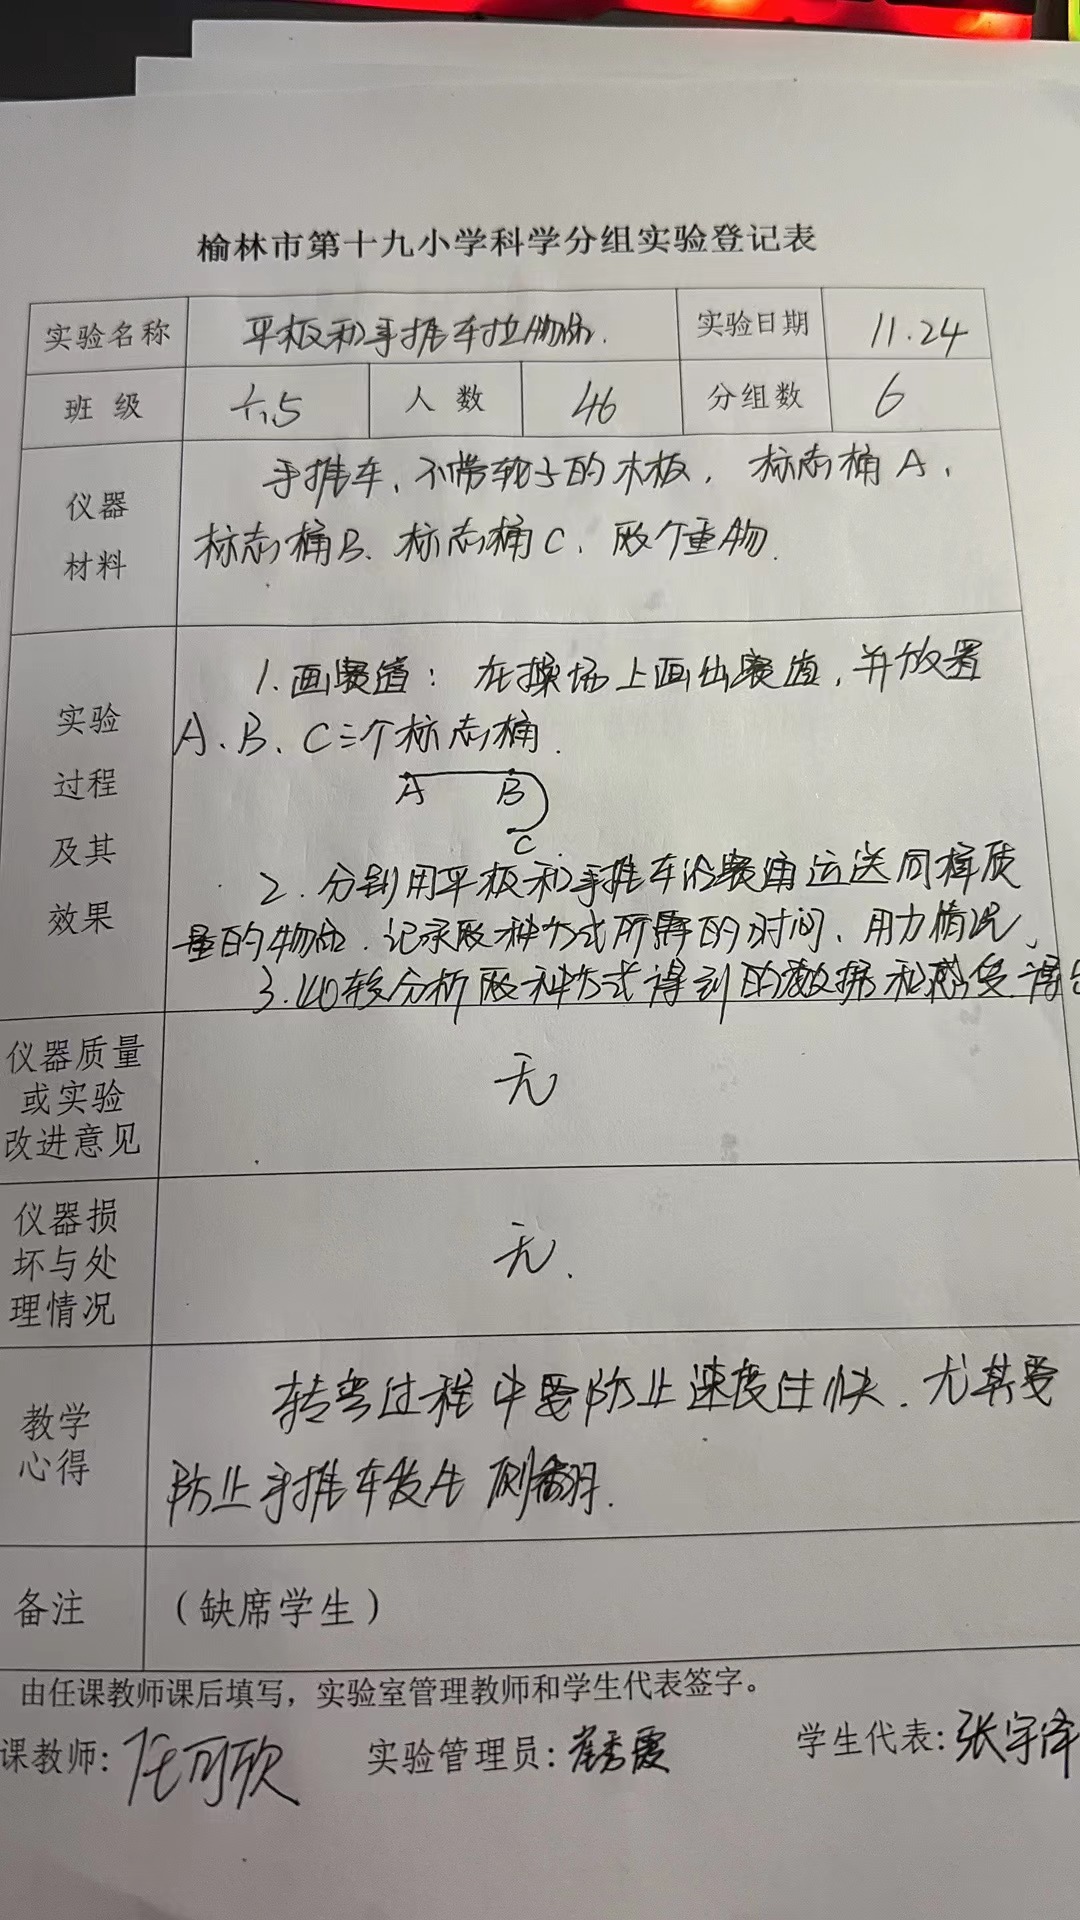 榆林市第十九小学科学分组实验登记表
实验名称 平板和手推车拉物体. 实验日期 11.24
班 级 六.5 人 数 46 分组数 6
仪器
材料
手推车、不带轮子的木板, 标志桶A、
标志桶B、标志桶C、两个重物.
实验
过程
及其
效果
1.画赛道: 在操场上画出赛道,并放置
A、B、C三个标志桶.
A B
C
2.分别用平板和手推车沿赛道运送同样质
量的物体.记录两种方式所需的时间、用力情况、
3.比较分析两种方式得到的数据和感受.得出
仪器质量
或实验
改进意见
无
仪器损
坏与处
理情况
无.
教学
心得
转弯过程中要防止速度过快.尤其要
防止手推车发生侧翻.
备注
(缺席学生)
由任课教师课后填写,实验室管理教师和学生代表签字。
课教师: 任可欣 实验管理员: 秀霞 学生代表: 张宇泽